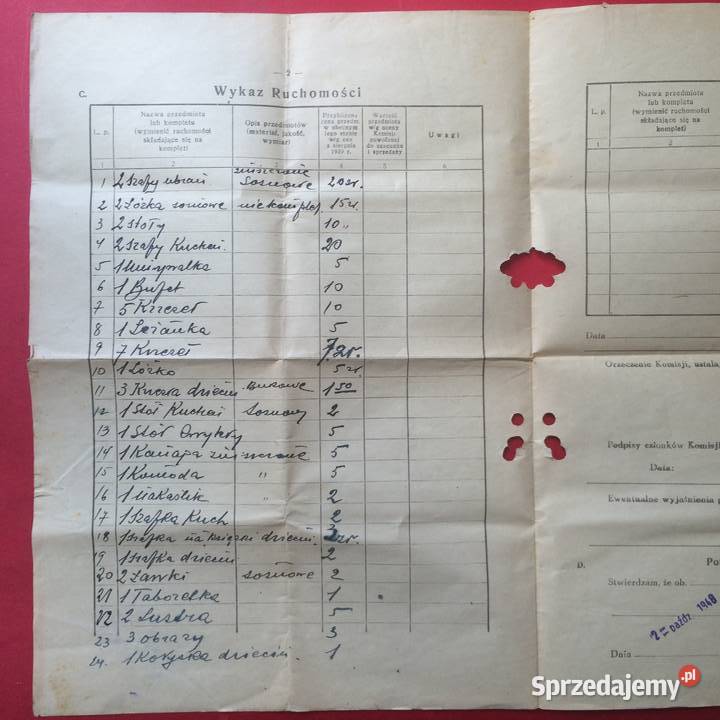 — 2 —
C. Wykaz Ruchomości
L. p. Nazwa przedmiotu lub kompletu (wymienić ruchomości składające się na komplet) Opis przedmiotów (materiał, jakość, wymiar) Wartość przedmiotu wg oceny Komisji powołanej do szacunku i sprzedaży Uwagi
1 2 3 4 5 6
1 2 Szafy ubrań zniszczone Sosnowe 20 zł.
2 2 Łóżka niekompl 15 zł.
3 2 Stoły 10 „
4 2 Szafy Kuchen. 20
5 1 Umywalka 5
6 1 Bufet 10
7 5 Krzeseł 10
8 1 Ścianka 5
9 7 Krzeseł 7 zł.
10 1 Łóżko 5 zł.
11 3 dziecin 1 50
12 1 Stół Kuchen Sosnowy 2
13 1 Stół 5
14 1 Kanapa zniszczone 5
15 1 Komoda „ 5
16 1 „ 2
17 1 Szafka Kuch 2
18 1 Szafka na książki dziecin. 2 zł.
19 1 Szafka dziecin 2
20 2 Ławki sosnowe 2
21 1 Taboretka 1
22 2 Lustra 5
23 3 obrazy 3
24. 1 Kołyska dziecin. 1
L. p. Nazwa przedmiotu lub kompletu (wymienić ruchomości składające się na komplet)
1 2
Data
Orzeczenie Komisji, ustala
Podpisy członków Komisji
Data:
Ewentualne wyjaśnienia p
D. Po
Stwierdzam, że ob.
2 – paźdz. 1948
Data
Sprzedajemy.pl